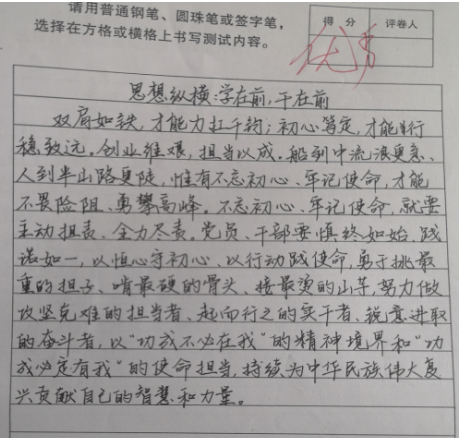 请用普通钢笔、圆珠笔或签字笔,
选择在方格或横格上书写测试内容。
得 分 评卷人
优秀
思想纵横:学在前,干在前
双肩如铁,才能力扛千钧;初心笃定,才能行
稳致远。创业维艰,担当以成。船到中流浪更急、
人到半山路更陡,惟有不忘初心、牢记使命,才能
不畏险阻、勇攀高峰。不忘初心、牢记使命,就要
主动担责、全力尽责。党员、干部要慎终如始、践
诺如一,以恒心守初心、以行动践使命,勇于挑最
重的担子、啃最硬的骨头、接最烫的山芋,努力做
攻坚克难的担当者、起而行之的实干者、锐意进取
的奋斗者,以"功成不必在我"的精神境界和"功
成必定有我"的使命担当,持续为中华民族伟大复
兴贡献自己的智慧和力量。